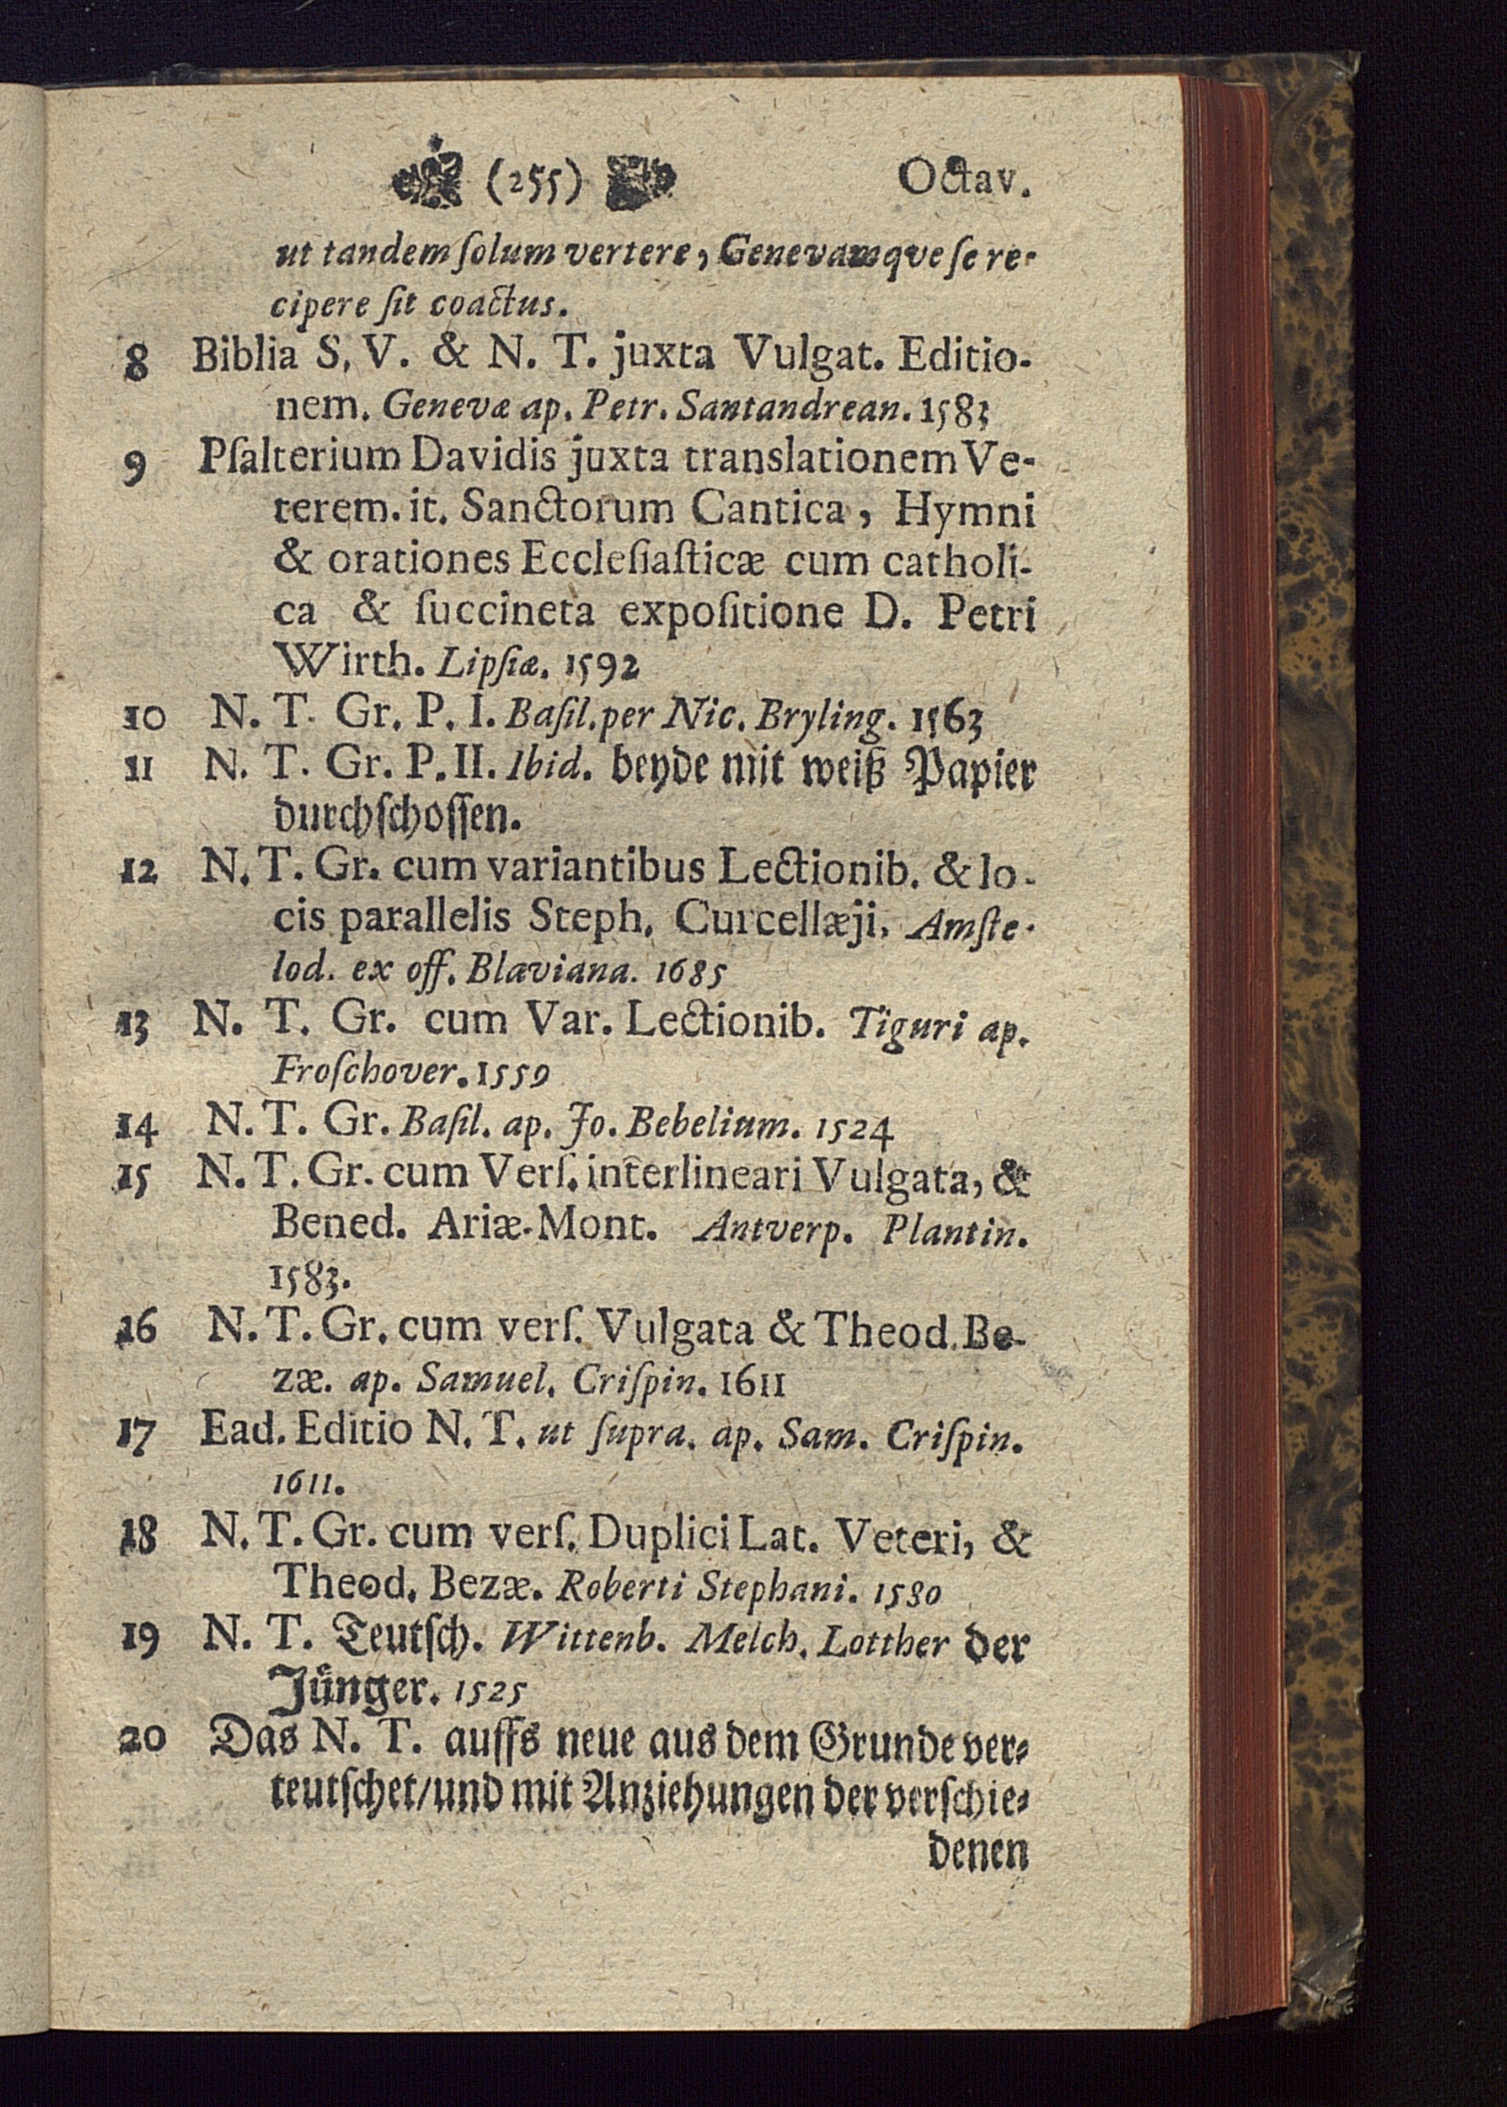 (255) Octav.
ut tandem ſolum vertere, Genevamqve ſe re-
cipere ſit coactus.
8 Biblia S. V. & N. T. juxta Vulgat. Editio-
nem. Genevæ ap. Petr. Santandrean. 1583
9 Pſalterium Davidis juxta translationem Ve-
terem. it. Sanctorum Cantica, Hymni
& orationes Eccleſiaſticæ cum catholi-
ca & ſuccineta expoſitione D. Petri
Wirth. Lipſiæ. 1592
10 N. T. Gr. P. I. Baſil. per Nic. Bryling. 1563
11 N. T. Gr. P. II. Ibid. beyde mit weiß Papier
durchſchoſſen.
12 N. T. Gr. cum variantibus Lectionib. & lo-
cis parallelis Steph. Curcellæji. Amſte-
lod. ex off. Blaviana. 1685
13 N. T. Gr. cum Var. Lectionib. Tiguri ap.
Froſchover. 1559
14 N. T. Gr. Baſil. ap. Jo. Bebelium. 1524
15 N. T. Gr. cum Verſ. interlineari Vulgata, &
Bened. Ariæ-Mont. Antverp. Plantin.
1583.
16 N. T. Gr. cum verſ. Vulgata & Theod. Be-
zæ. ap. Samuel. Criſpin. 1611
17 Ead. Editio N. T. ut ſupra. ap. Sam. Criſpin.
1611.
18 N. T. Gr. cum verſ. Duplici Lat. Veteri, &
Theod. Bezæ. Roberti Stephani. 1580
19 N. T. Teutſch. Wittenb. Melch. Lotther der
Jünger. 1525
20 Das N. T. auffs neue aus dem Grunde ver-
teutſchet/und mit Anziehungen der verſchie-
denen